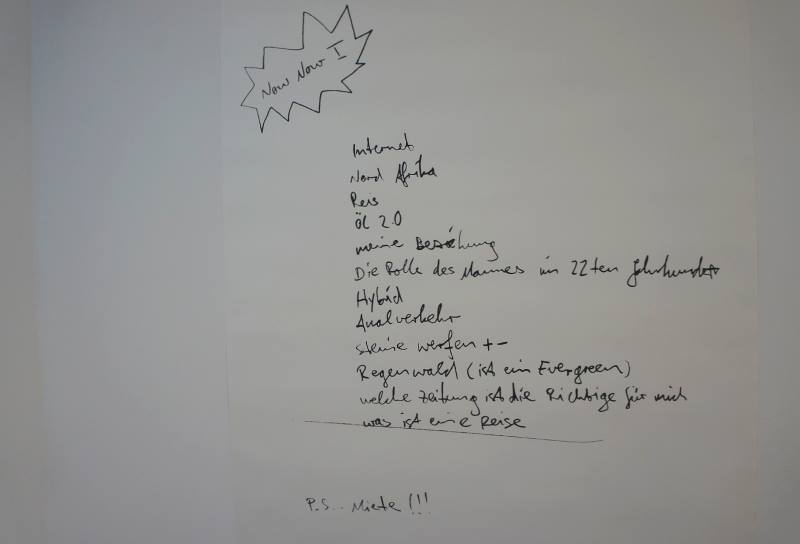 Now Now I
Internet
Nord Afrika
Reis
öl 2.0
meine Beziehung
Die Rolle des Mannes im 22ten Jahrhundert
Hybrid
Analverkehr
steine werfen + -
Regenwald (ist ein Evergreen)
welche Zeitung ist die Richtige für mich
was ist eine Reise
P.S.. Miete !!!